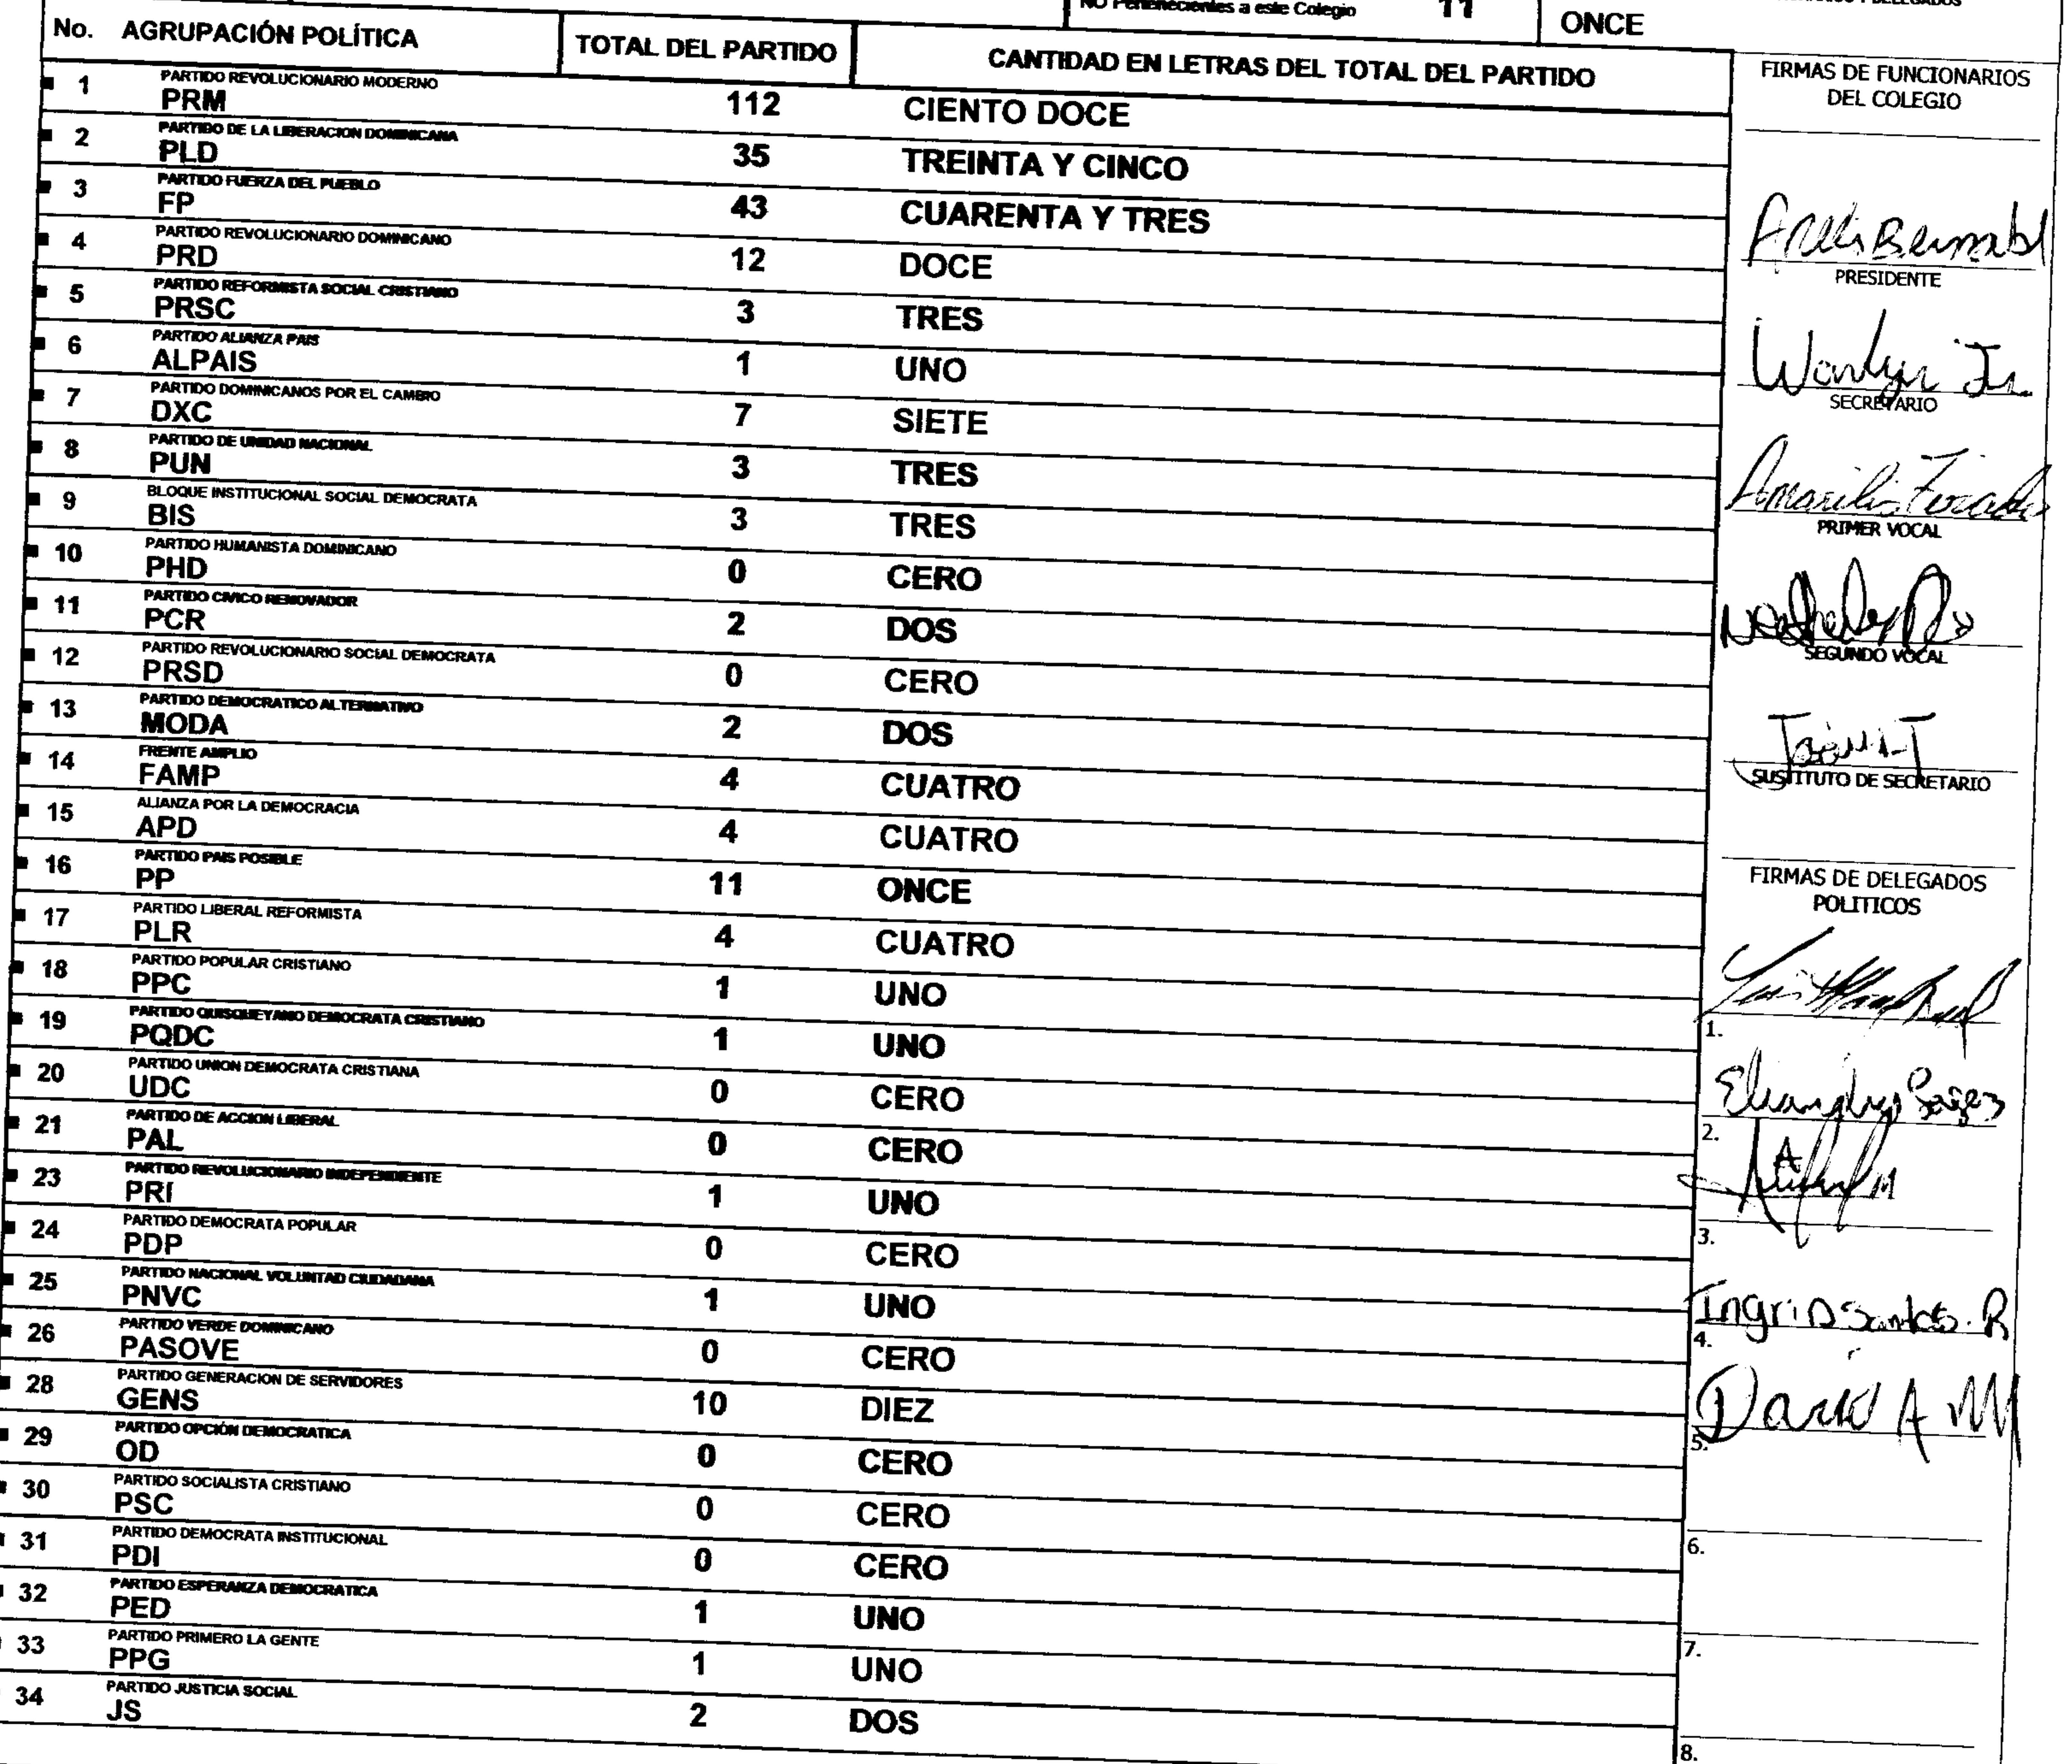 NO Pertenecientes a este Colegio 11 ONCE
No. AGRUPACIÓN POLÍTICA TOTAL DEL PARTIDO CANTIDAD EN LETRAS DEL TOTAL DEL PARTIDO
PARTIDO REVOLUCIONARIO MODERNO
1 PRM 112 CIENTO DOCE
PARTIDO DE LA LIBERACION DOMINICANA
2 PLD 35 TREINTA Y CINCO
PARTIDO FUERZA DEL PUEBLO
3 FP 43 CUARENTA Y TRES
PARTIDO REVOLUCIONARIO DOMINICANO
4 PRD 12 DOCE
PARTIDO REFORMISTA SOCIAL CRISTIANO
5 PRSC 3 TRES
PARTIDO ALIANZA PAIS
6 ALPAIS 1 UNO
PARTIDO DOMINICANOS POR EL CAMBIO
7 DXC 7 SIETE
PARTIDO DE UNIDAD NACIONAL
8 PUN 3 TRES
BLOQUE INSTITUCIONAL SOCIAL DEMOCRATA
9 BIS 3 TRES
PARTIDO HUMANISTA DOMINICANO
10 PHD 0 CERO
PARTIDO CIVICO RENOVADOR
11 PCR 2 DOS
PARTIDO REVOLUCIONARIO SOCIAL DEMOCRATA
12 PRSD 0 CERO
PARTIDO DEMOCRATICO ALTERNATIVO
13 MODA 2 DOS
FRENTE AMPLIO
14 FAMP 4 CUATRO
ALIANZA POR LA DEMOCRACIA
15 APD 4 CUATRO
PARTIDO PAIS POSIBLE
16 PP 11 ONCE
PARTIDO LIBERAL REFORMISTA
17 PLR 4 CUATRO
PARTIDO POPULAR CRISTIANO
18 PPC 1 UNO
PARTIDO QUISQUEYANO DEMOCRATA CRISTIANO
19 PQDC 1 UNO
PARTIDO UNION DEMOCRATA CRISTIANA
20 UDC 0 CERO
PARTIDO DE ACCION LIBERAL
21 PAL 0 CERO
PARTIDO REVOLUCIONARIO INDEPENDIENTE
23 PRI 1 UNO
PARTIDO DEMOCRATA POPULAR
24 PDP 0 CERO
PARTIDO NACIONAL VOLUNTAD CIUDADANA
25 PNVC 1 UNO
PARTIDO VERDE DOMINICANO
26 PASOVE 0 CERO
PARTIDO GENERACION DE SERVIDORES
28 GENS 10 DIEZ
PARTIDO OPCIÓN DEMOCRATICA
29 OD 0 CERO
PARTIDO SOCIALISTA CRISTIANO
30 PSC 0 CERO
PARTIDO DEMOCRATA INSTITUCIONAL
31 PDI 0 CERO
PARTIDO ESPERANZA DEMOCRATICA
32 PED 1 UNO
PARTIDO PRIMERO LA GENTE
33 PPG 1 UNO
PARTIDO JUSTICIA SOCIAL
34 JS 2 DOS
FIRMAS DE FUNCIONARIOS
DEL COLEGIO
PRESIDENTE
SECRETARIO
PRIMER VOCAL
SEGUNDO VOCAL
SUSTITUTO DE SECRETARIO
FIRMAS DE DELEGADOS
POLITICOS
1.
2.
3.
Ingrid Santos. R
4.
David A M
5.
6.
7.
8.